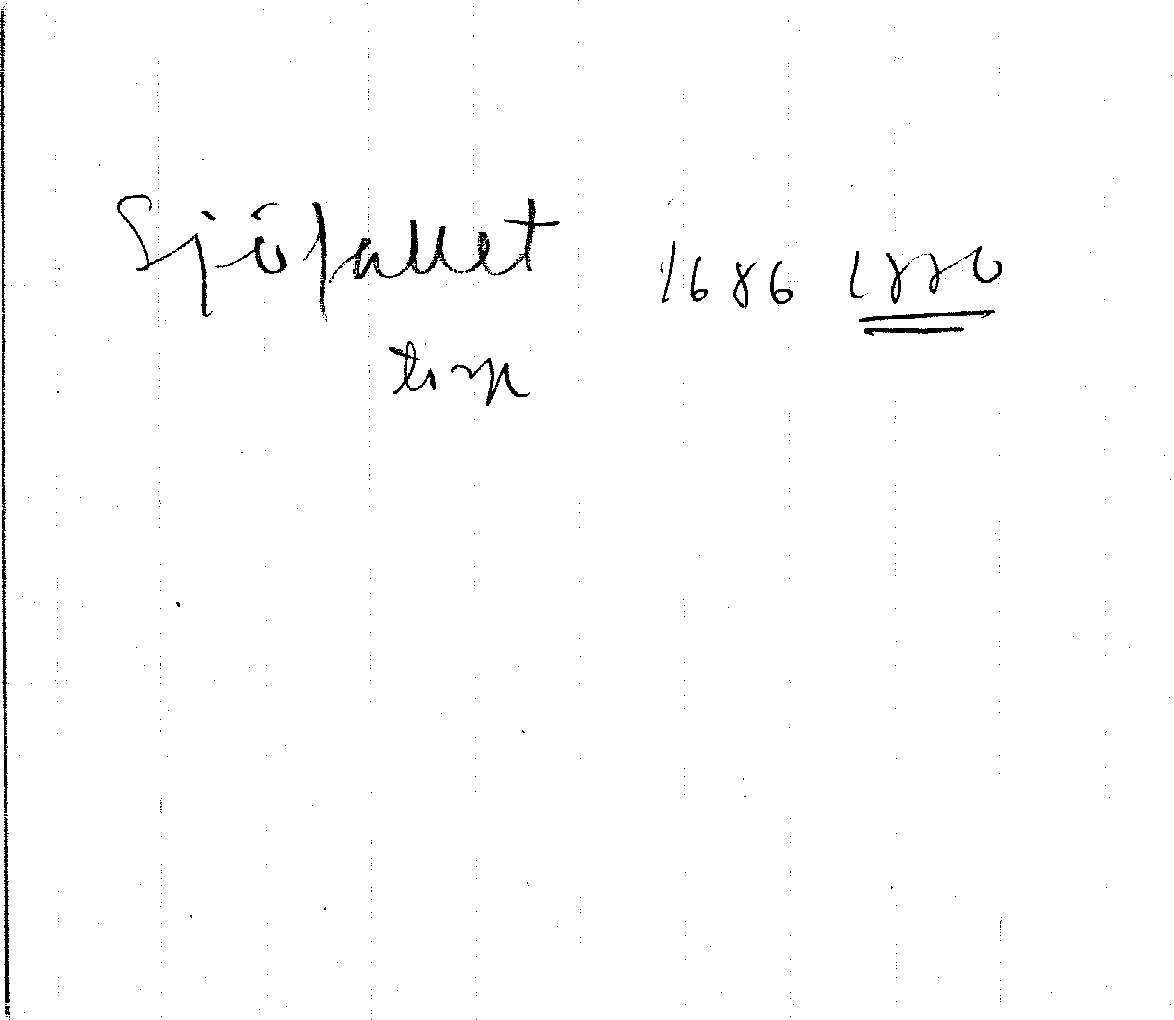 Sjöfallet 1686 1880
torp